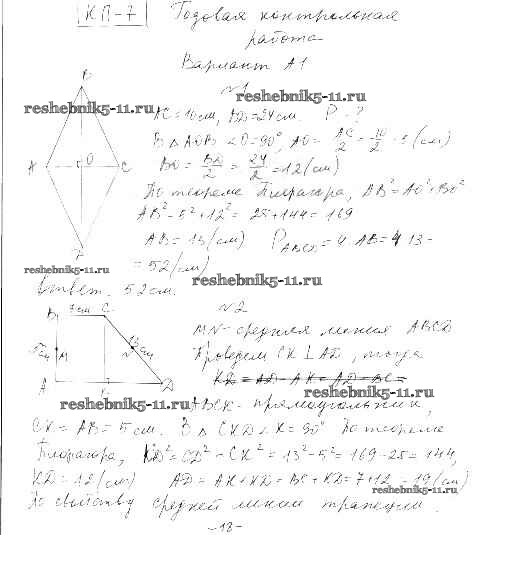 КП-7 Годовая контрольная
работа
Вариант А1
№1
reshebnik5-11.ru reshebnik5-11.ru
AC = 10 см, BD = 24 см. P - ?
В △ AOB ∠O = 90°, AO = AC/2 = 10/2 = 5 (см)
BO = BD/2 = 24/2 = 12 (см)
По теореме Пифагора, AB² = AO² + BO²
AB² = 5² + 12² = 25 + 144 = 169
AB = 13 (см) P ABCD = 4 AB = 4 13 =
= 52 (см)
reshebnik5-11.ru reshebnik5-11.ru
Ответ. 52 см.
№2
MN - средняя линия ABCD
Проведем CK ⊥ AD, тогда
KD = AD - AK = AD - BC =
reshebnik5-11.ru reshebnik5-11.ru
ABCK - прямоугольник,
CK = AB = 5 см. В △ CKD ∠K = 90° По теореме
Пифагора, KD² = CD² - CK² = 13² - 5² = 169 - 25 = 144,
KD = 12 (см) AD = AK + KD = BC + KD = 7 + 12 = 19 (см)
reshebnik5-11.ru
По свойству средней линии трапеции
-18-
B
A O C
B 7 см C
5 см M N 13 см
A K D